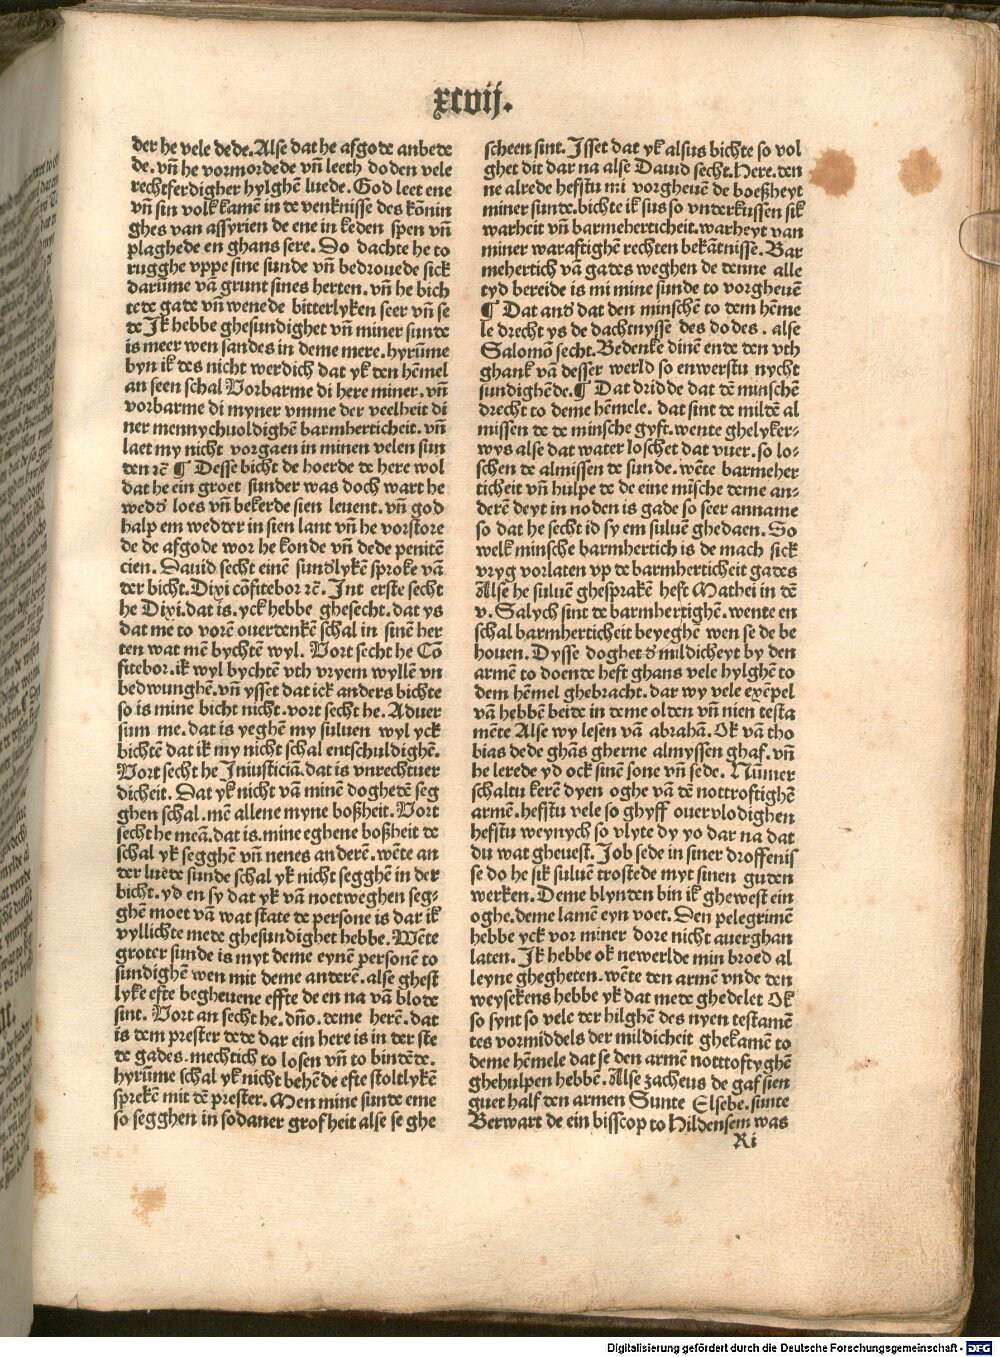 xcvij.
der he vele dede. Alse dat he afgode anbede
de. vñ he vormordede vñ leeth doden vele
rechtferdigher hylghē luede. God leet ene
vñ sin volk kamē in de venknisse des kōnin
ghes van assyrien de ene in keden spen vñ
plaghede en ghans sere. Do dachte he to
rugghe vppe sine sunde vñ bedrouede sick
darūme vā grunt sines herten. vñ he bich
tede gade vñ wenede bitterlyken seer vñ se
de Jk hebbe ghesundighet vñ miner sunde
is meer wen sandes in deme mere. hyrūme
byn ik des nicht werdich dat yk den hēmel
an seen schal Vorbarme di here miner. vñ
vorbarme di myner vmme der veelheit di
ner mennychuoldighē barmherticheit. vñ
laet my nicht vorgaen in minen velen sun
den ꝛē ¶ Desse bicht de hoerde de here wol
dat he ein groet sunder was doch wart he
wedō loes vñ bekerde sien leuent. vñ god
halp em wedder in sien lant vñ he vorstore
de de afgode wor he konde vñ dede penitē
cien. Dauid secht einē sundʼlykē sproke vā
der bicht. Dixi cōfitebor ꝛē. Int erste secht
he Dixi. dat is. yck hebbe ghesecht. dat ys
dat me to vorē ouerdenkē schal in sinē her
ten wat mē bychtē wyl. Vort secht he Cō
fitebor. ik wyl bychtē vth vryem wyllē vn
bedwunghē. vñ ysset dat ick anders bichte
so is mine bicht nicht. vort secht he. Aduer
sum me. dat is yeghē my suluen wyl yck
bichtē dat ik my nicht schal entschuldighē.
Vort secht he Iniusticiā. dat is vnrechtuer
dicheit. Dat yk nicht vā minē doghedē seg
ghen schal. mē allene myne boßheit. Vort
secht he meā. dat is. mine eghene boßheit de
schal yk segghē vñ nenes anderē. wēte an
der luede sunde schal yk nicht segghē in der
bicht. yd en sy dat yk vā noetweghen seg-
ghē moet vā wat state de persone is dar ik
vyllichte mede ghesundighet hebbe. Wēte
groter sunde is myt deme eynē personē to
sundighē wen mit deme anderē. alse ghest
lyke efte begheuene effte de en na vā blode
sint. Vort an secht he. dño. deme herē. dat
is dem prester dede dar ein here is in der ste
de gades. mechtich to losen vñ to bindēde.
hyrūme schal yk nicht behēde efte stoltlykē
sprekē mit dē prester. Men mine sunde eme
so segghen in sodaner grofheit alse se ghe
scheen sint. Isset dat yk alsus bichte so vol
ghet dit dar na alse Dauid secht. Here. den
ne alrede hefstu mi vorgheuē de boeßheyt
miner sunde. bichte ik sus so vnderkussen sik
warheit vñ barmeherticheit. warheyt van
miner waraftighē rechten bekātnisse. Bar
mehertich vā gades weghen de denne alle
tyd bereide is mi mine sunde to vorgheuē
¶ Dat andʼ dat den minschē to dem hēme
le drecht ys de dachtnysse des dodes. alse
Salomō secht. Bedenke dinē ende den vth
ghank vā desser werld so enwerstu nycht
sundighēde. ¶ Dat dridde dat dē minschē
drecht to deme hēmele. dat sint de mildē al
missen de de minsche gyft. wente ghelyker-
wys alse dat water loschet dat vuer. so lo-
schen de almissen de sunde. wēte barmeher
ticheit vñ hulpe de de eine mīsche deme an-
derē deyt in noden is gade so seer anname
so dat he secht id sy em suluē ghedaen. So
welk minsche barmhertich is de mach sick
vryg vorlaten vp de barmherticheit gades
Alse he suluē ghesprakē heft Mathei in dē
v. Salych sint de barmhertighē. wente en
schal barmherticheit beyeghē wen se de be
houen. Dysse doghet dʼ mildicheyt by den
armē to doende heft ghans vele hylghē to
dem hēmel ghebracht. dar wy vele exēpel
vā hebbē beide in deme olden vñ nien testa
mēte Alse wy lesen vā abrahā. Ok vā tho
bias dede ghās gherne almyssen ghaf. vñ
he lerede yd ock sinē sone vñ sede. Nūmer
schaltu kerē dyen oghe vā dē nottroftighē
armē. hefstu vele so ghyff ouervlodighen
hefstu weynych so vlyte dy yo dar na dat
du wat gheuest. Job sede in siner droffenis
se do he sik suluē trostede myt sinen guden
werken. Deme blynden bin ik ghewest ein
oghe. deme lamē eyn voet. Den pelegrimē
hebbe yck vor miner dore nicht auerghan
laten. Ik hebbe ok newerlde min broed al
leyne ghegheten. wēte den armē vnde den
weysekens hebbe yk dat mede ghedelet Ok
so synt so vele der hilghē des nyen testamē
tes vormiddels der mildicheit ghekamē to
deme hēmele dat se den armē notttoftyghē
ghehulpen hebbē. Alse zacheus de gaf sien
guet half den armen Sunte Elsebe. sunte
Berwart de ein bisscop to Hildensem was
Ri
Digitalisierung gefördert durch die Deutsche Forschungsgemeinschaft - DFG